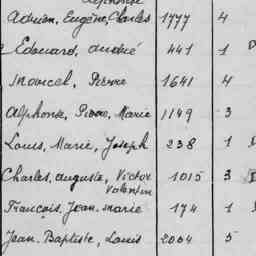 Alphonse
Adrien, Eugène, Charles 1777 4
Edouard, André 441 1
Marcel, Pierre 1641 4
Alphonse, Pierre, Marie 1149 3
Louis, Marie, Joseph 238 1
Charles, Auguste, Victor 1015 3
Valentin
François, Jean-Marie 174 1
Jean-Baptiste, Louis 2004 5